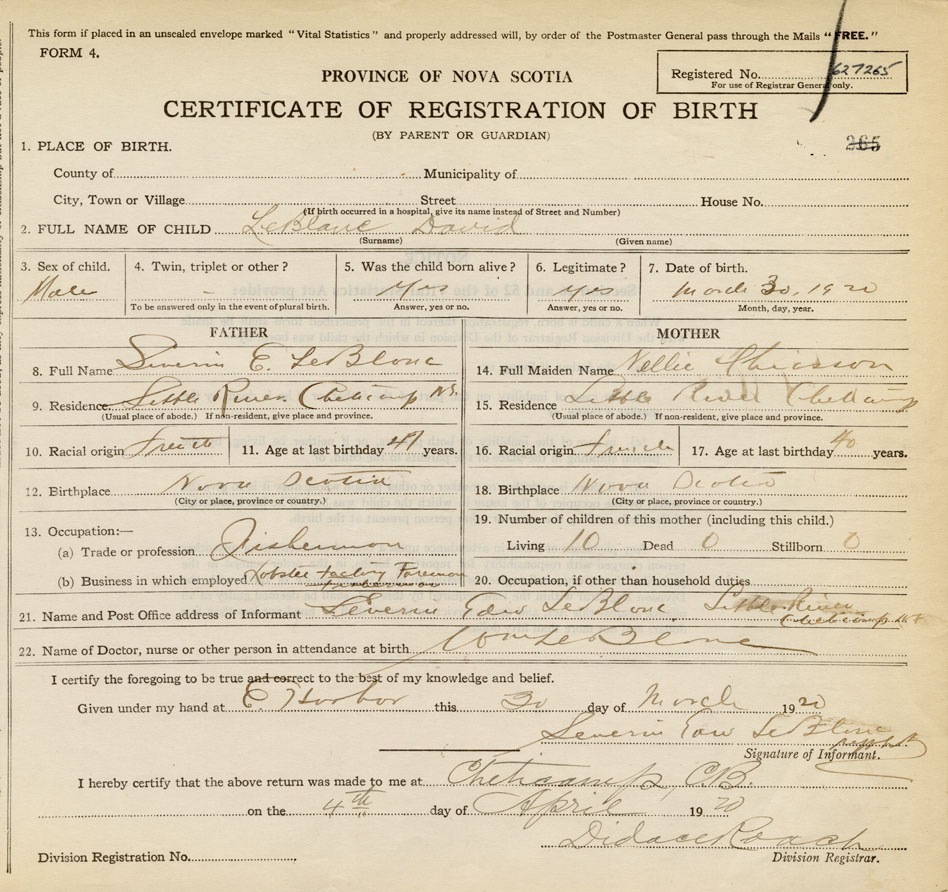 This form if placed in an unsealed envelope marked "Vital Statistics" and properly addressed will, by order of the Postmaster General pass through the Mails "FREE."
FORM 4.
PROVINCE OF NOVA SCOTIA
Registered No. 627265
For use of Registrar General only.
CERTIFICATE OF REGISTRATION OF BIRTH
(BY PARENT OR GUARDIAN)
265
1. PLACE OF BIRTH.
County of Municipality of
City, Town or Village Street House No.
(If birth occurred in a hospital, give its name instead of Street and Number)
2. FULL NAME OF CHILD LeBlanc David
(Surname) (Given name)
3. Sex of child. 4. Twin, triplet or other? 5. Was the child born alive? 6. Legitimate? 7. Date of birth.
Male - Yes Yes March 30, 1920
To be answered only in the event of plural birth. Answer, yes or no. Answer, yes or no. Month, day, year.
FATHER MOTHER
8. Full Name Severin E. LeBlanc 14. Full Maiden Name Nellie Chiasson
9. Residence Little River Cheticamp N.S. 15. Residence Little River Cheticamp
(Usual place of abode.) If non-resident, give place and province. (Usual place of abode.) If non-resident, give place and province.
10. Racial origin French 11. Age at last birthday 41 years. 16. Racial origin French 17. Age at last birthday 40 years.
12. Birthplace Nova Scotia 18. Birthplace Nova Scotia
(City or place, province or country.) (City or place, province or country.)
13. Occupation:— 19. Number of children of this mother (including this child.)
(a) Trade or profession Fisherman Living 10 Dead 0 Stillborn 0
(b) Business in which employed Lobster factory Foreman 20. Occupation, if other than household duties
21. Name and Post Office address of Informant Severin Edw LeBlanc Little River
Cheticamp
22. Name of Doctor, nurse or other person in attendance at birth LeBlanc
I certify the foregoing to be true and correct to the best of my knowledge and belief.
Given under my hand at E Harbor this 30 day of March 1920
Severin Edw LeBlanc
Signature of Informant.
I hereby certify that the above return was made to me at Cheticamp, C.B.
on the 4th day of April 1920
Didace Roach
Division Registration No. Division Registrar.